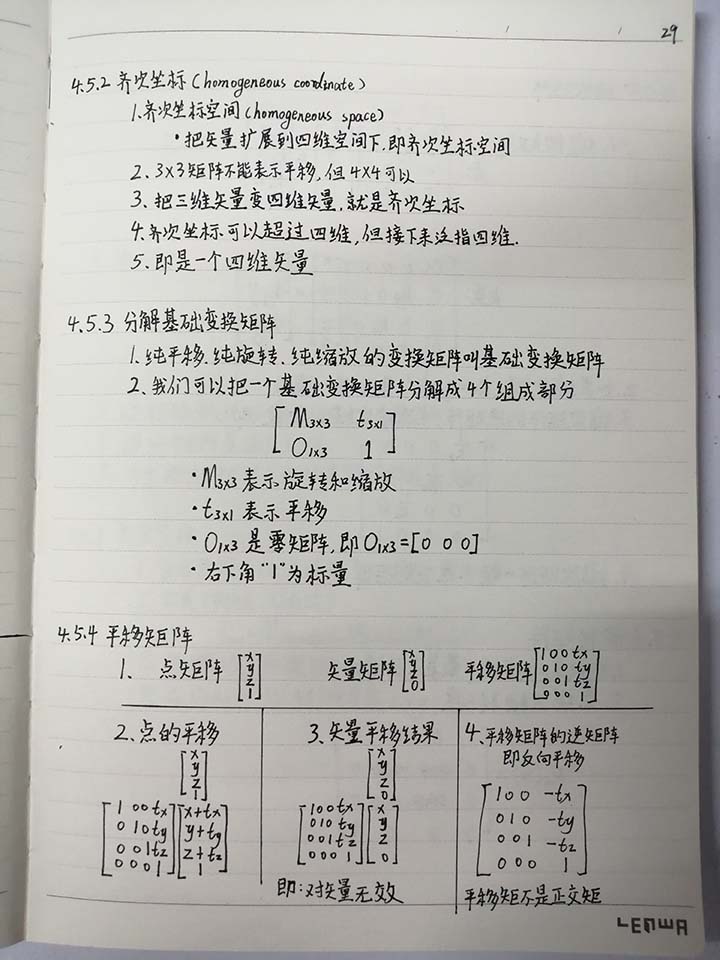 29
4.5.2 齐次坐标 (homogeneous coordinate)
1.齐次坐标空间 (homogeneous space)
·把矢量扩展到四维空间下,即齐次坐标空间
2. 3×3矩阵不能表示平移,但4×4可以
3. 把三维矢量变四维矢量,就是齐次坐标
4.齐次坐标可以超过四维,但接下来泛指四维.
5.即是一个四维矢量
4.5.3 分解基础变换矩阵
1.纯平移.纯旋转.纯缩放的变换矩阵叫基础变换矩阵
2.我们可以把一个基础变换矩阵分解成4个组成部分
M3×3 t3×1
O1×3 1
·M3×3 表示旋转和缩放
·t3×1 表示平移
·O1×3 是零矩阵,即O1×3=[0 0 0]
·右下角"1"为标量
4.5.4 平移矩阵
1. 点矩阵 [x y z 1] 矢量矩阵 [x y z 0] 平移矩阵 [1 0 0 tx 0 1 0 ty 0 0 1 tz 0 0 0 1]
2、点的平移
x
y
z
1
1 0 0 tx x+tx
0 1 0 ty y+ty
0 0 1 tz z+tz
0 0 0 1 1
3、矢量平移结果
x
y
z
0
1 0 0 tx x
0 1 0 ty y
0 0 1 tz z
0 0 0 1 0
即:对矢量无效
4、平移矩阵的逆矩阵
即反向平移
1 0 0 -tx
0 1 0 -ty
0 0 1 -tz
0 0 0 1
平移矩不是正交矩
LENWA